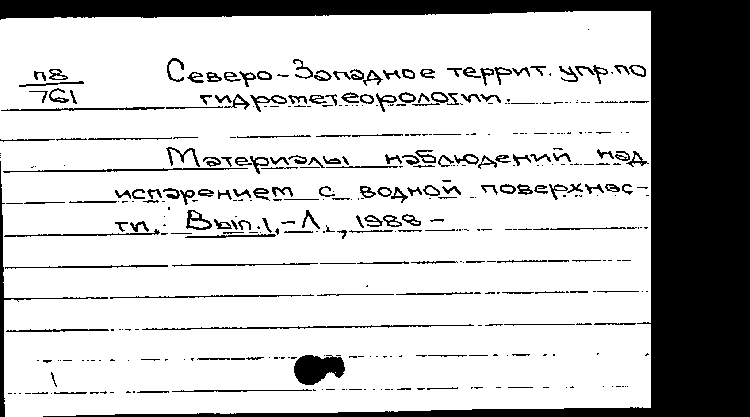 п8 Северо-Западное террит. упр. по
761 гидрометеорологии.
Материалы наблюдений над
испарением с водной поверхнос-
ти. Вып.1,-Л., 1988 -